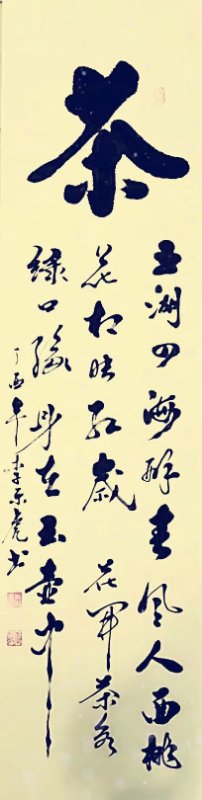 茶
五湖四海醉春风人面桃
花相映红花茶
绿只缘身在玉壶中
丁酉年李虎书